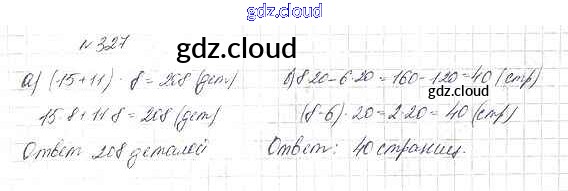 gdz.cloud
№ 327
gdz.cloud
а) (15+11) · 8 = 208 (дет)
15·8+11·8 = 208 (дет)
Ответ 208 деталей
б) 8·20-6·20=160-120=40 (стр)
gdz.cloud
(8-6)·20=2·20=40 (стр)
Ответ: 40 страниц.